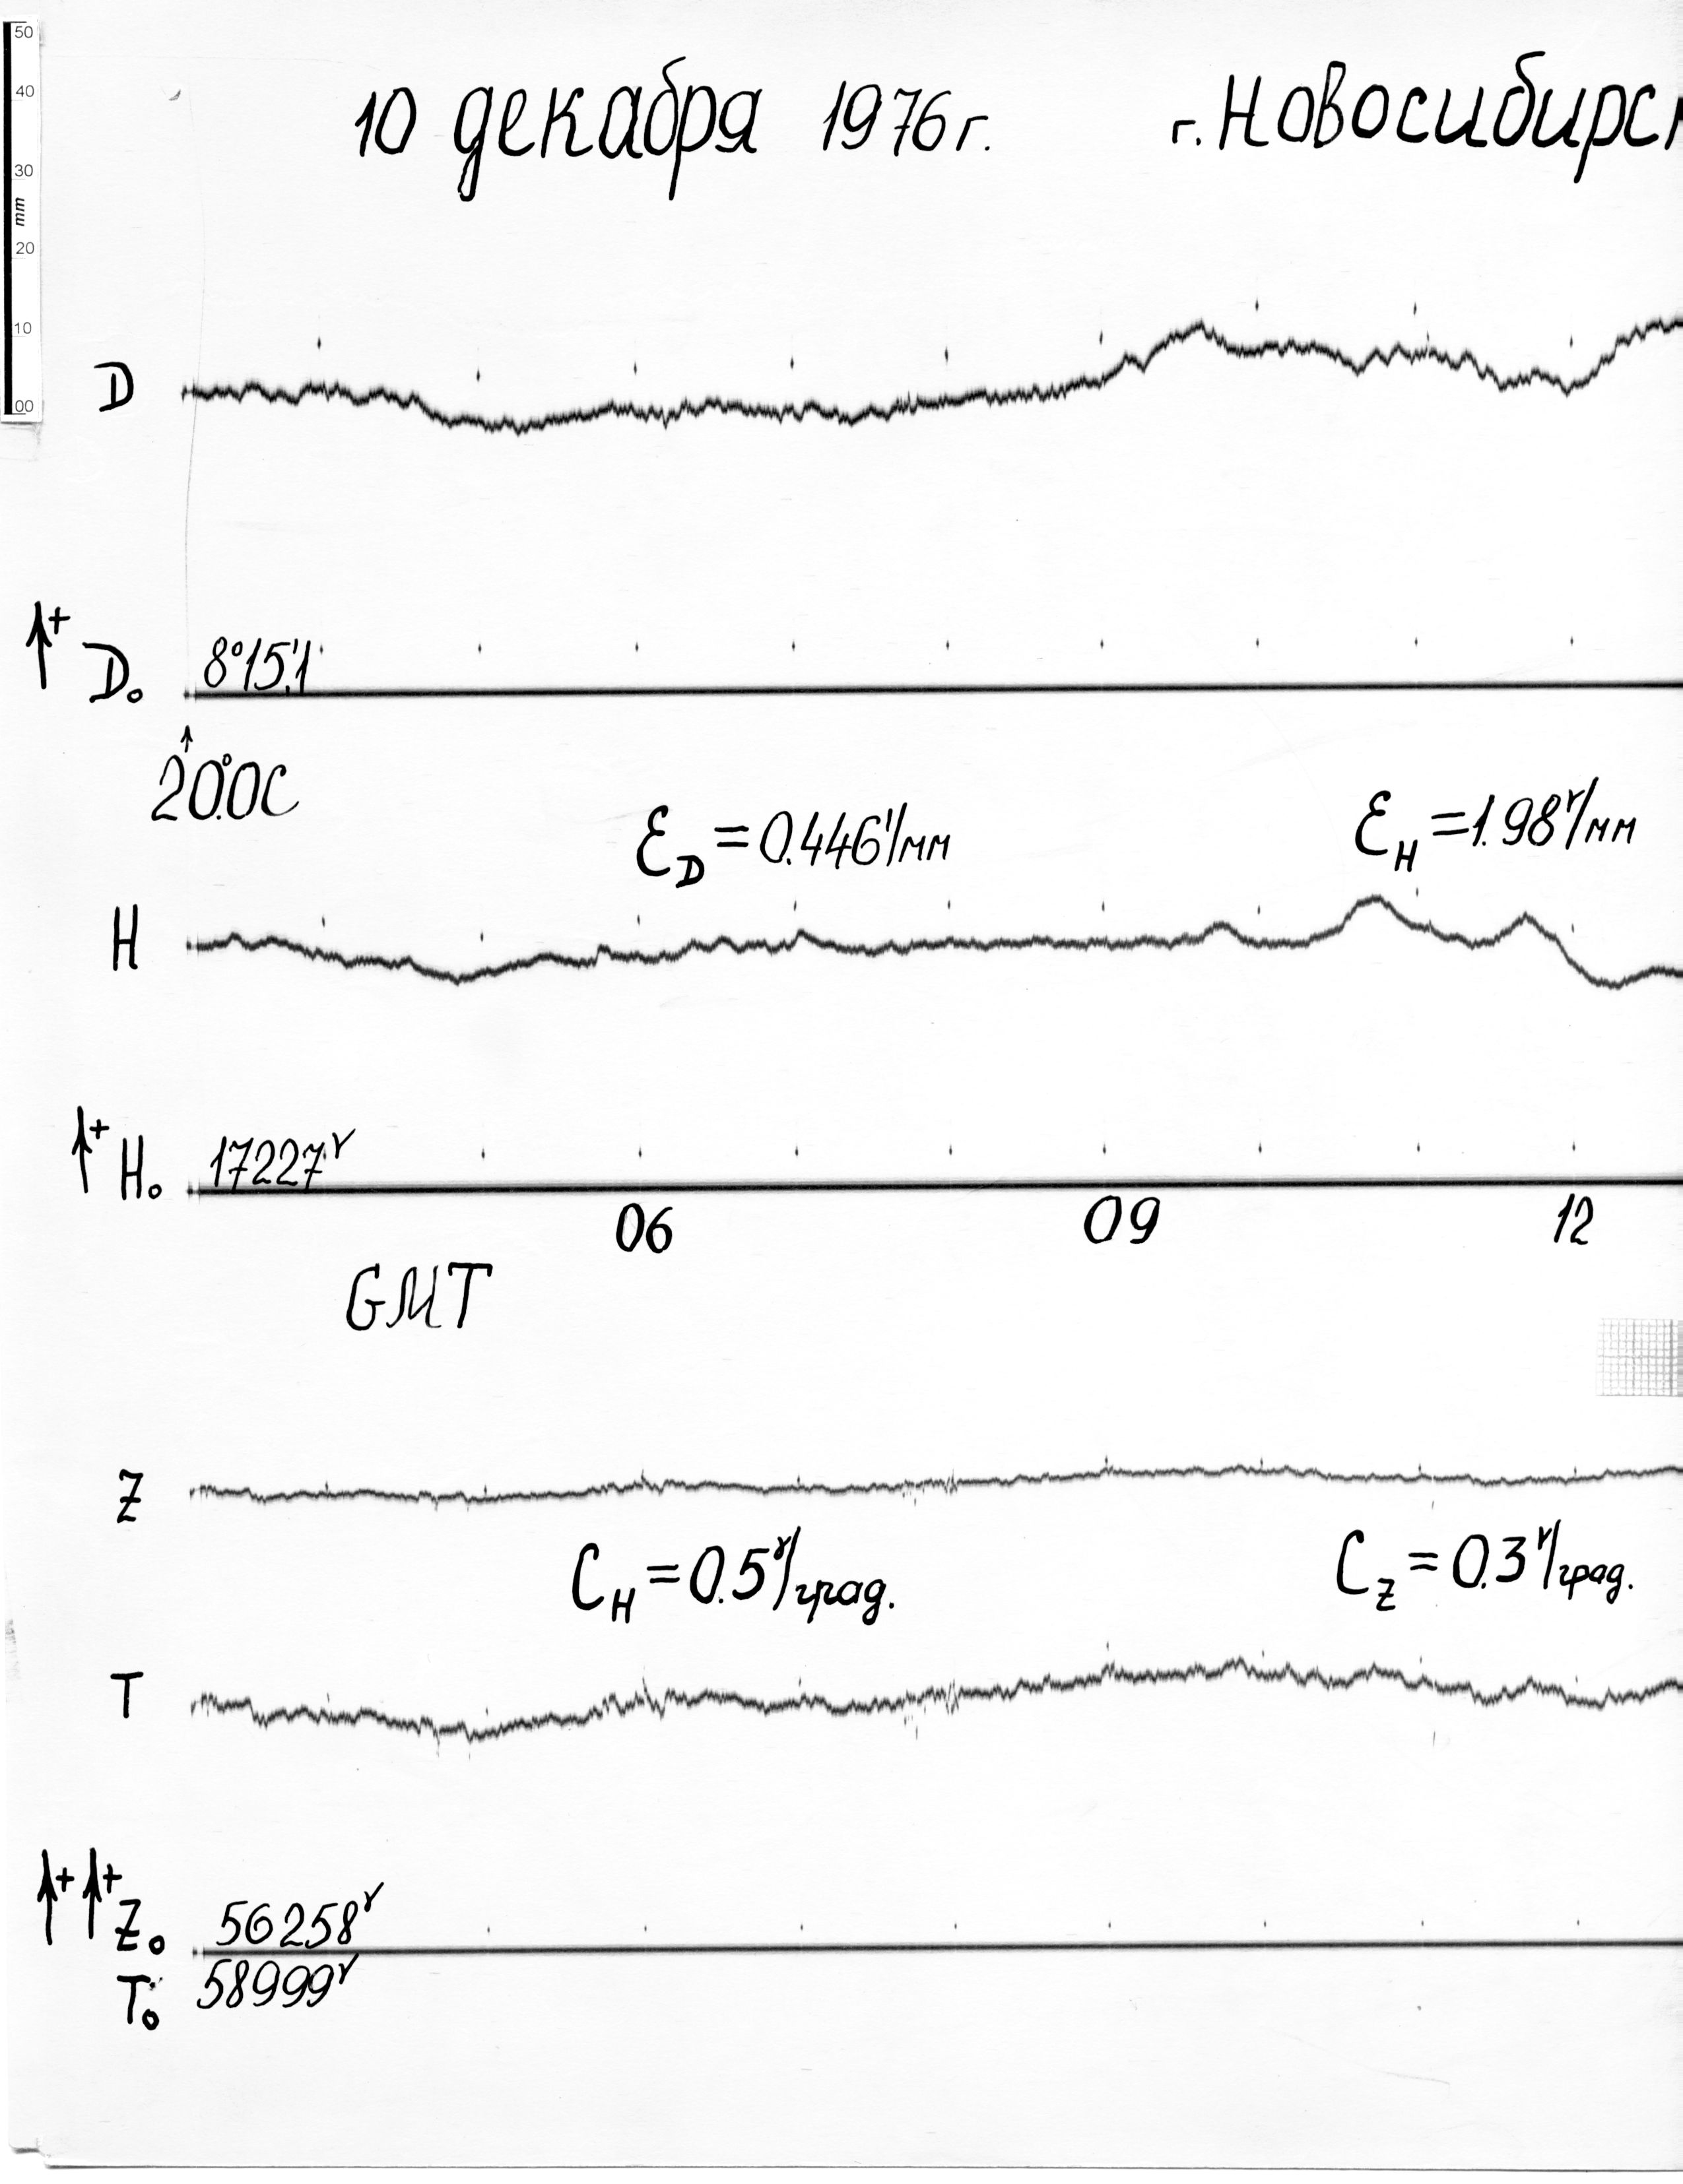 50
40
30
mm
20
10
00
10 декабря 1976 г. г. Новосибирск
D
+
D₀ 8°15.'1
20.°0C
ℰD = 0.446'/мм ℰH = 1.98γ/мм
H
+
H₀ 17227γ
06 09 12
GMT
Z
CH = 0.5γ/град. CZ = 0.3γ/град.
T
+ +
Z₀ 56258γ
T₀ 58999γ